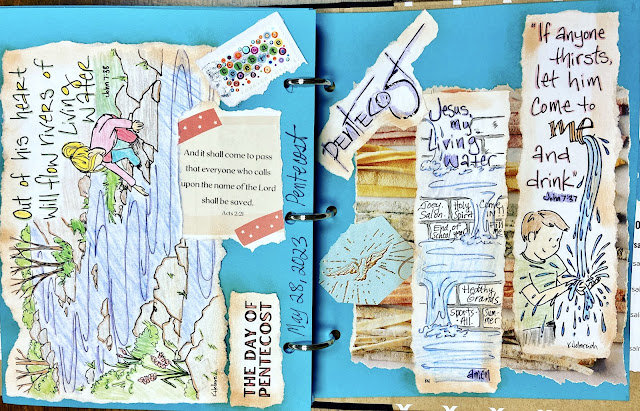 Out of his heart
will flow rivers of
Living
Water
John 7:38
And it shall come to pass
that everyone who calls
upon the name of the Lord
shall be saved.
Acts 2:21
THE DAY OF
PENTECOST
May 28, 2023 Pentecost
PENTECOST
Jesus, my
Living
Water
Joey
Salon
Holy
Spirit
Come
End of
School year
Healthy
Grands
Sports-
All
Sum-
mer
amen
"If anyone
thirsts,
let him
come to
me
and
drink"
John 7:37